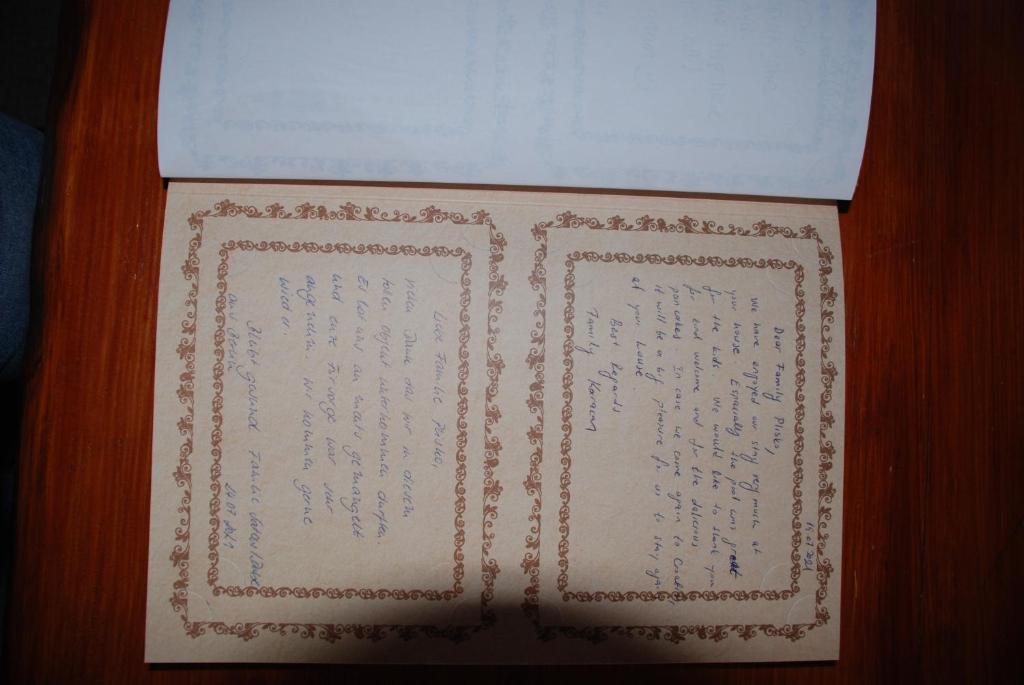 14.07.2021
Dear Family Plisko,
We have enjoyed our stay very much at
your house. Especially the pool was great
for the kids. We would like to thank you
for and welcome and for the delicious
pancakes. In case we come again to
it will be a big pleasure for us to stay again
at your house
Best Regards
Family Karacan
Liebe Familie
vielen Dank das wir in diesem
tollen Objekt unterkommen durften.
Es hat uns an nichts gemangelt
und eure Fürsorge war sehr
angenehm. Wir kommen gerne
wieder.
Bleibt gesund Familie
aus Berlin
24.07.2021